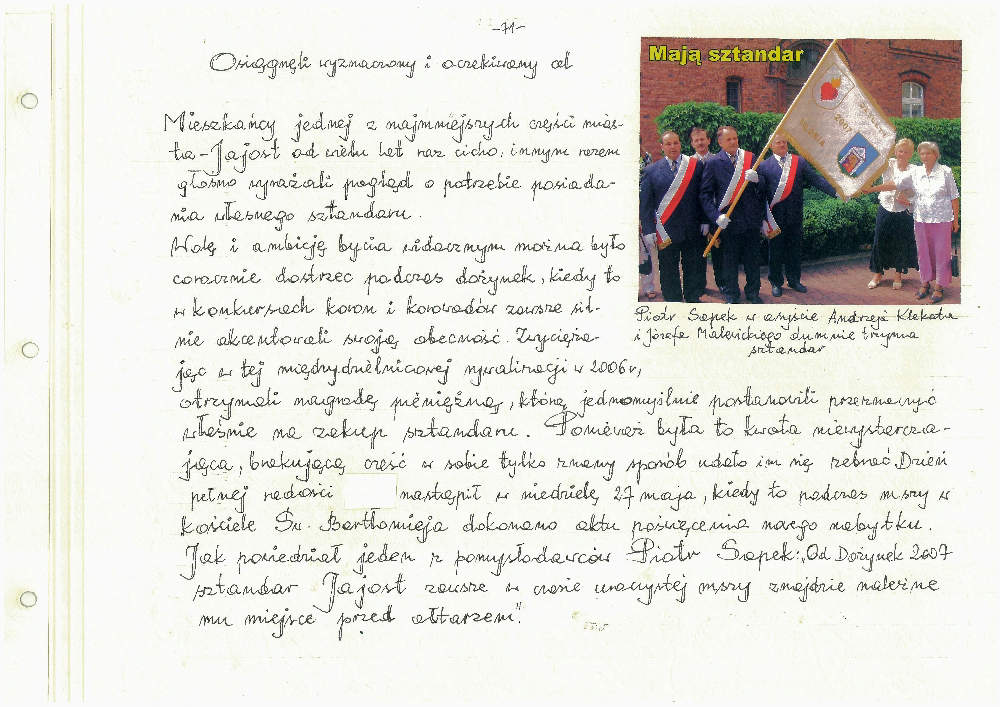 -71-
Osiągnęli wyznaczony i oczekiwany cel
Mieszkańcy jednej z najmniejszych części mias-
ta - Jajost od wielu lat raz cicho, innym razem
głośno wyrażali pogląd o potrzebie posiada-
nia własnego sztandaru.
Wolę i ambicję bycia widocznym można było
corocznie dostrzec podczas dożynek, kiedy to
w konkursach koron i korowodów zawsze sil-
nie akcentowali swoją obecność. Zwycięża-
jąc w tej międzydzielnicowej rywalizacji w 2006 r,
otrzymali nagrodę pieniężną, którą jednomyślnie postanowili przeznaczyć
właśnie na zakup sztandaru. Ponieważ była to kwota niewystarcza-
jąca, brakującą część w sobie tylko znany sposób udało im się zebrać. Dzień
pełnej radości nastąpił w niedzielę 27 maja, kiedy to podczas mszy w
kościele Św. Bartłomieja dokonano aktu poświęcenia nowego nabytku.
Jak powiedział jeden z pomysłodawców Piotr Sapek: „Od Dożynek 2007
sztandar Jajost zawsze w czasie uroczystej mszy znajdzie należne
mu miejsce przed ołtarzem".
Mają sztandar
2007
Piotr Sapek w asyście Andrzeja Klekota
i Józefa Malewickiego dumnie trzyma
sztandar